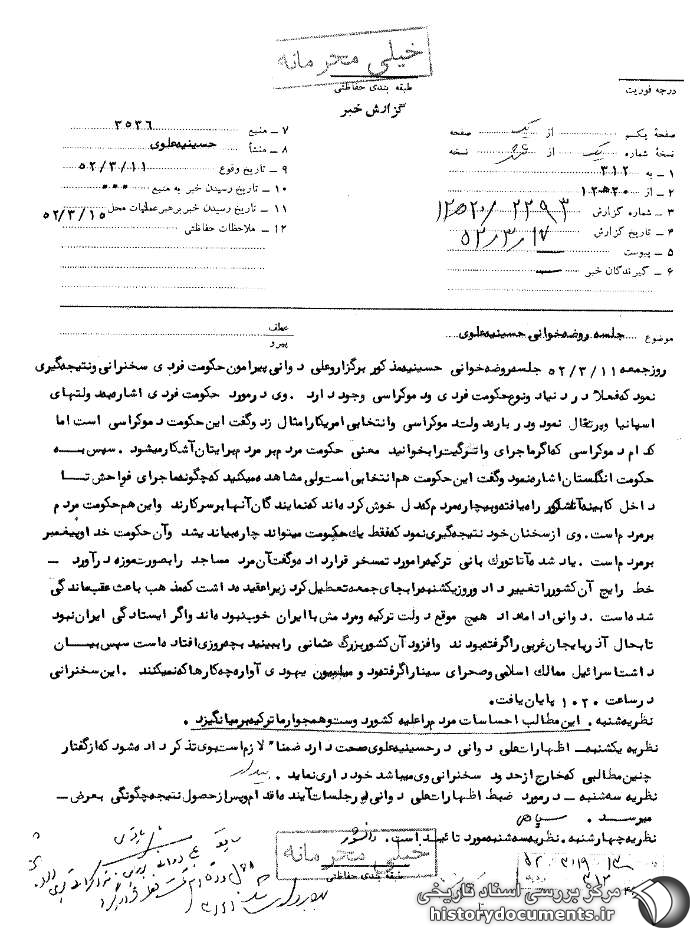 خیلی محرمانه
طبقه بندی حفاظتی
گزارش خبر
درجه فوریت
صفحهٔ یکم از یک صفحه
نسخهٔ شماره یک از نسخه
۱ ـ به ۳۱۲
۲ ـ از ۱۲ ﻫ ۲۰
۳ ـ شماره گزارش ۲۲۹۳/ ۲۰ﻫ۱۲
۴ ـ تاریخ گزارش ۵۲/۳/۱۷
۵ ـ پیوست
۶ ـ گیرندگان خبر
۷ ـ منبع ۳۵۳۶
۸ ـ منشأ حسینیه علوی
۹ ـ تاریخ وقوع ۵۲/۳/۱۱
۱۰ ـ تاریخ رسیدن خبر به منبع ۰۰۰
۱۱ ـ تاریخ رسیدن خبر برهبر عملیات محل ۵۲/۳/۱۵
۱۲ ـ ملاحظات حفاظتی
موضوع جلسه روضه خوانی حسینیه علوی
عطف
پیرو
روز جمعه ۵۲/۳/۱۱ جلسه روضه خوانی حسینیه مذکور برگزار و علی دوانی پیرامون حکومت فردی سخنرانی و نتیجه گیری
نمود که فعلا در دنیا دو نوع حکومت فردی و دموکراسی وجود دارد . وی در مورد حکومت فردی اشاره بدولتهای
اسپانیا و پرتقال نمود و درباره دولت دموکراسی و انتخابی امریکا را مثال زد و گفت این حکومت دموکراسی است اما
کدام دموکراسی که اگر ماجرای واترگیت را بخوانید معنی حکومت مردم بر مردم برایتان آشکار میشود . سپس به
حکومت انگلستان اشاره نمود و گفت این حکومت هم انتخابی است ولی مشاهده میکنید که چگونه ماجرای فواحش تا
داخل کابینه آنکشور راه یافته و بیچاره مردم که دل خوش کرده اند که نمایندگان آنها بر سر کارند و این هم حکومت مردم
بر مردم است. وی از سخنان خود نتیجه گیری نمود که فقط یک حکومت میتواند چاره بیاندیشد و آن حکومت خدا و پیغمبر
بر مردم است . یاد شده آتاتورک بانی ترکیه را مورد تمسخر قرار داده و گفت آن مرد مساجد را بصورت موزه درآورد ـ
خط رایج آن کشور را تغییر داد و روز یکشنبه را بجای جمعه تعطیل کرد زیرا عقیده داشت که مذهب باعث عقب ماندگی
شده است . دوانی ادامه داد هیچ موقع دولت ترکیه و مردمش با ایران خوب نبوده اند و اگر ایستادگی ایران نبود
تا بحال آذربایجان غربی را گرفته بودند و افزود آن کشور بزرگ عثمانی را ببینید بچه روزی افتاده است سپس بیان
داشت اسرائیل ممالک اسلامی و صحرای سینا را گرفته و میلیون یهودی آواره چه کارها که نمیکنند . این سخنرانی
در ساعت ۱۰۲۰ پایان یافت.
نظریه شنبه . این مطالب احساسات مردم را علیه کشور دوست و همجوار ما ترکیه برمیانگیزد .
نظریه یکشنبه ـ اظهارات علی دوانی در حسینیه علوی صحت دارد ضمناً لازم است بوی تذکر داده شود که از گفتار
چنین مطالبی که خارج از حدود سخنرانی وی میباشد خودداری نماید . بیدار
نظریه سه شنبه ـ در مورد ضبط اظهارات علی دوانی در جلسات آینده اقدام و پس از حصول نتیجه چگونگی بعرض ـ
میرسد . سپاهی
نظریه چهارشنبه . نظریه سه شنبه مورد تائید است . دانشور
خیلی محرمانه
طبقه بندی حفاظتی
۳۱۲
مرکز بررسی اسناد تاریخی
historydocuments.ir